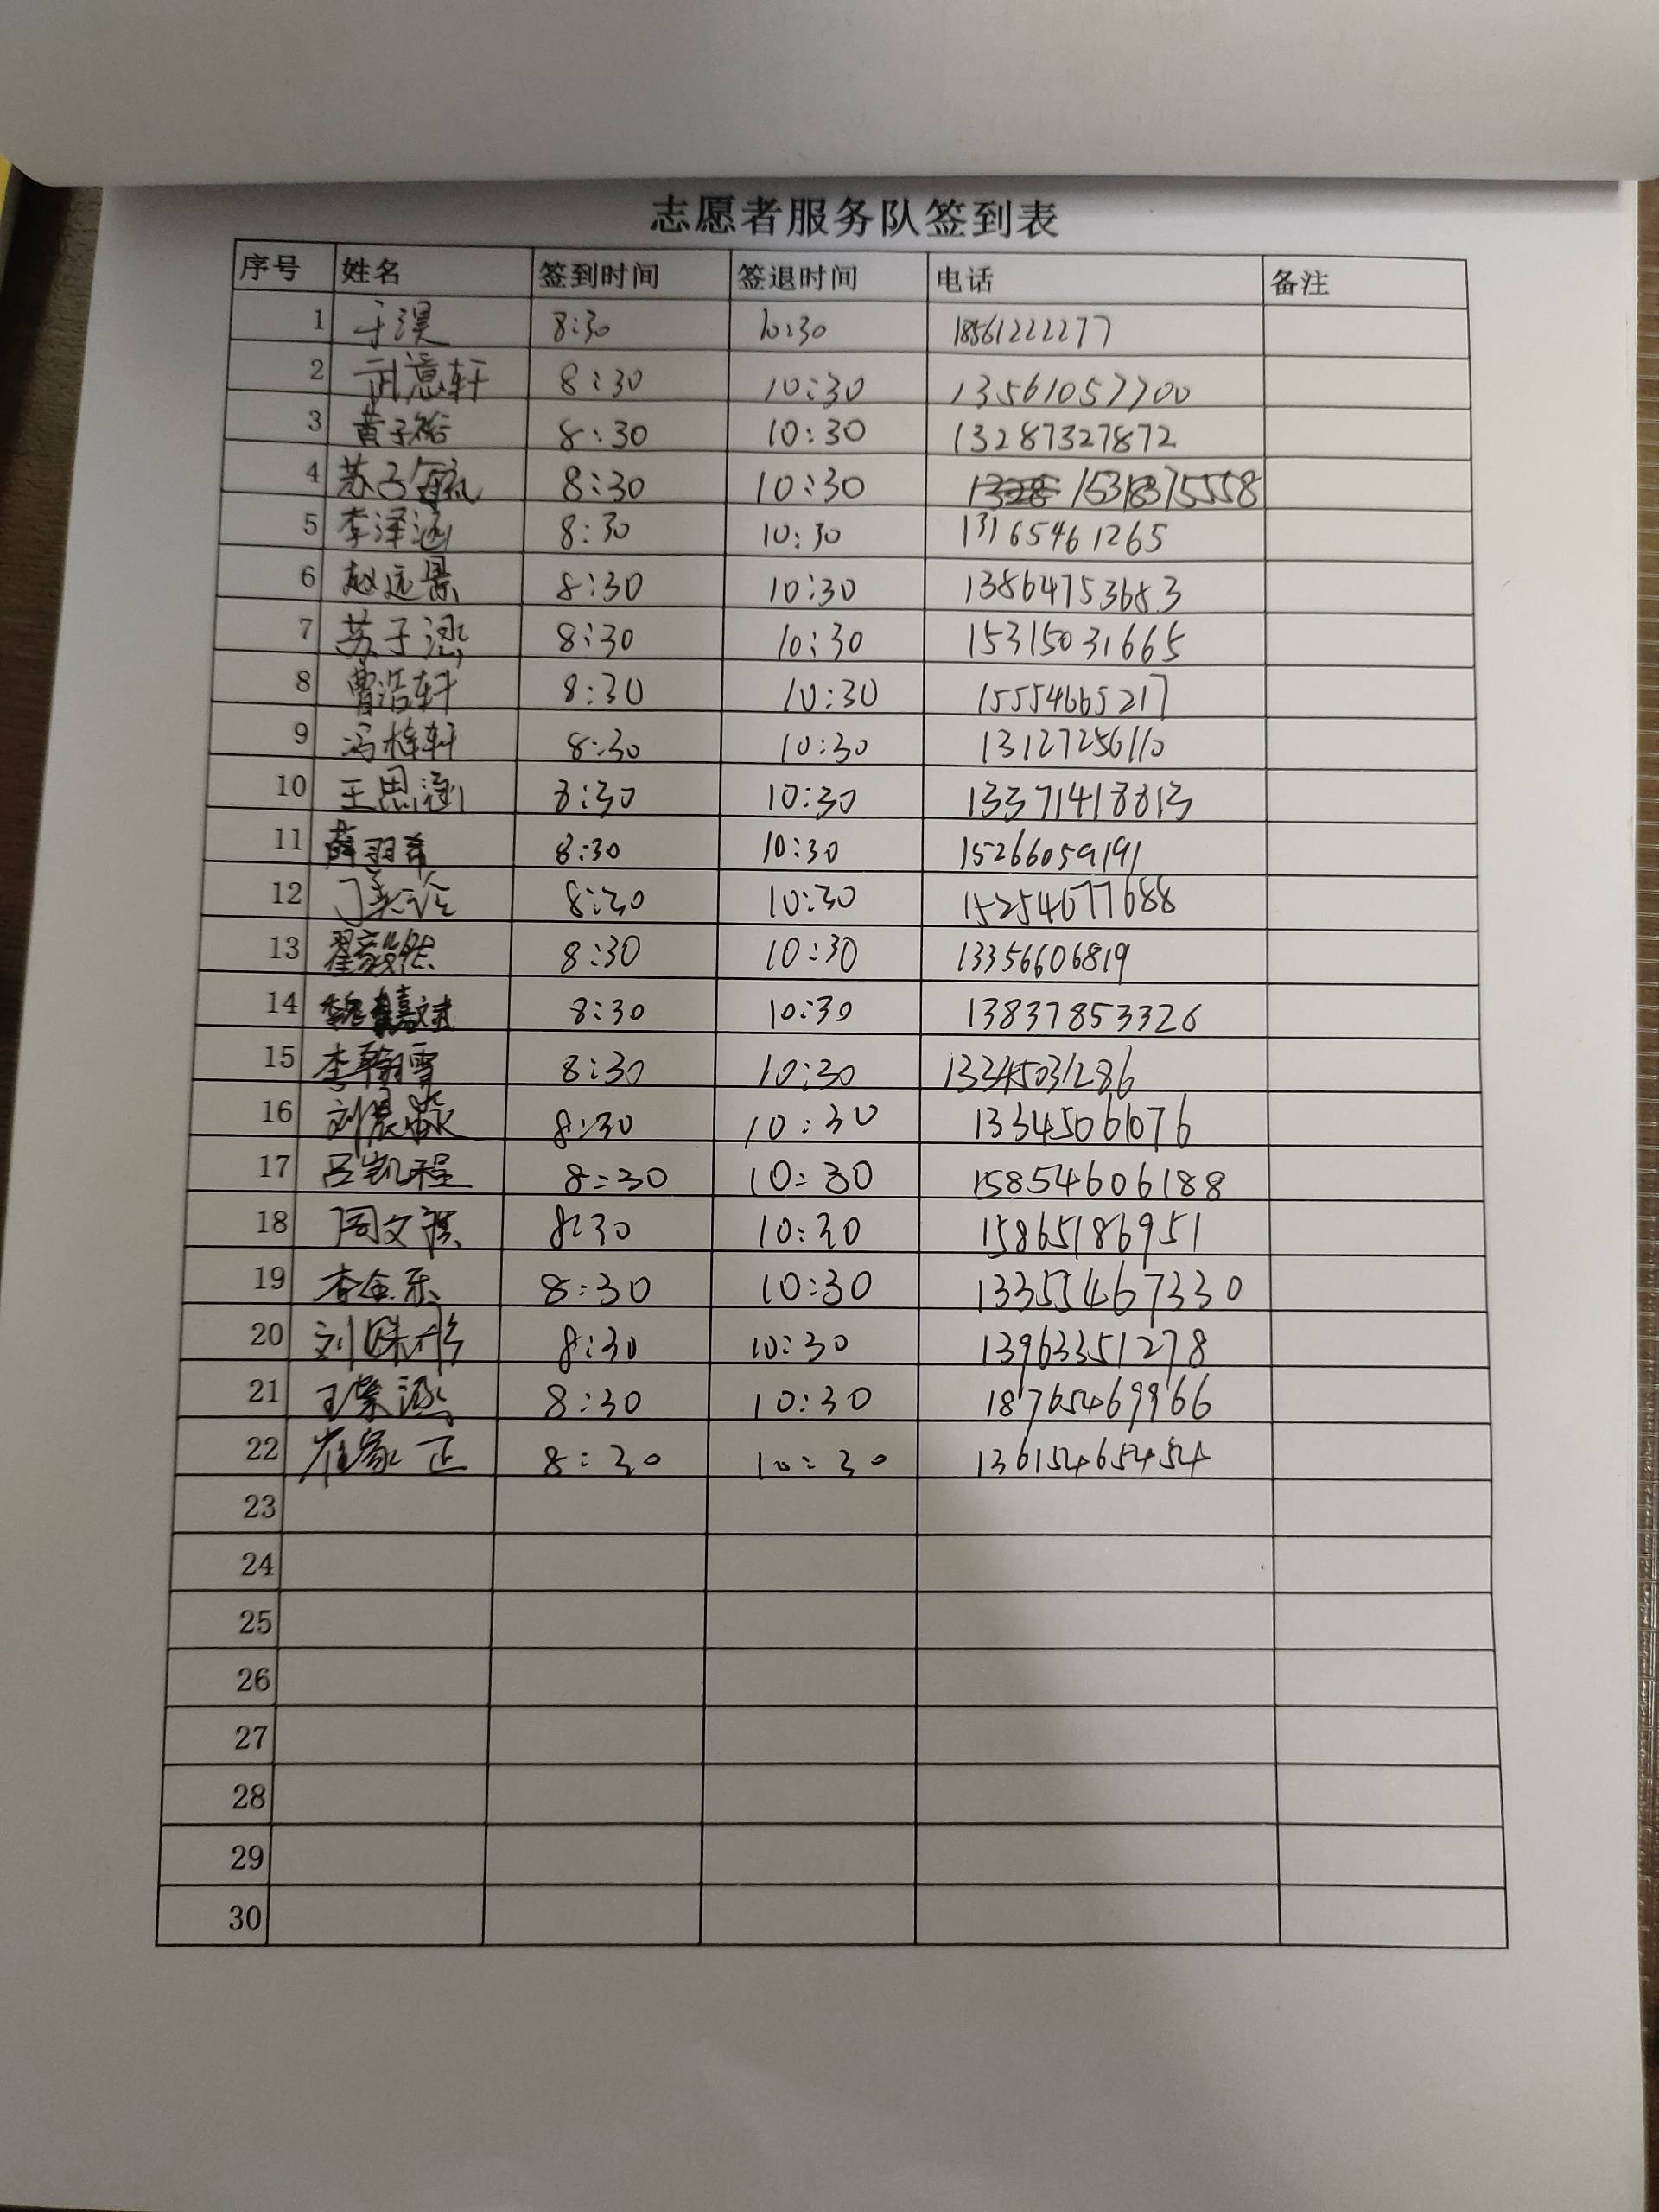 志愿者服务队签到表
序号 姓名 签到时间 签退时间 电话 备注
1 于淏 8:30 10:30 18561222277
2 武意轩 8:30 10:30 13561057700
3 黄子裕 8:30 10:30 13287327872
4 苏子航 8:30 10:30 15318375558
5 李泽涵 8:30 10:30 13165461265
6 赵远景 8:30 10:30 13864753683
7 苏子涵 8:30 10:30 15315031665
8 曹浩轩 8:30 10:30 15554665217
9 冯梓轩 8:30 10:30 13127256110
10 王思涵 8:30 10:30 13371418813
11 薛羽希 8:30 10:30 15266059191
12 8:30 10:30 15254677688
13 翟毅然 8:30 10:30 13356606819
14 魏嘉斌 8:30 10:30 13837853326
15 李翰雪 8:30 10:30 13345031286
16 刘晨 8:30 10:30 13345061076
17 吕凯程 8:30 10:30 15854606188
18 周文祺 8:30 10:30 15865186951
19 李金乐 8:30 10:30 13355467330
20 刘姝彤 8:30 10:30 13963351278
21 王紫涵 8:30 10:30 18765469966
22 崔家正 8:30 10:30 13615465454
23
24
25
26
27
28
29
30